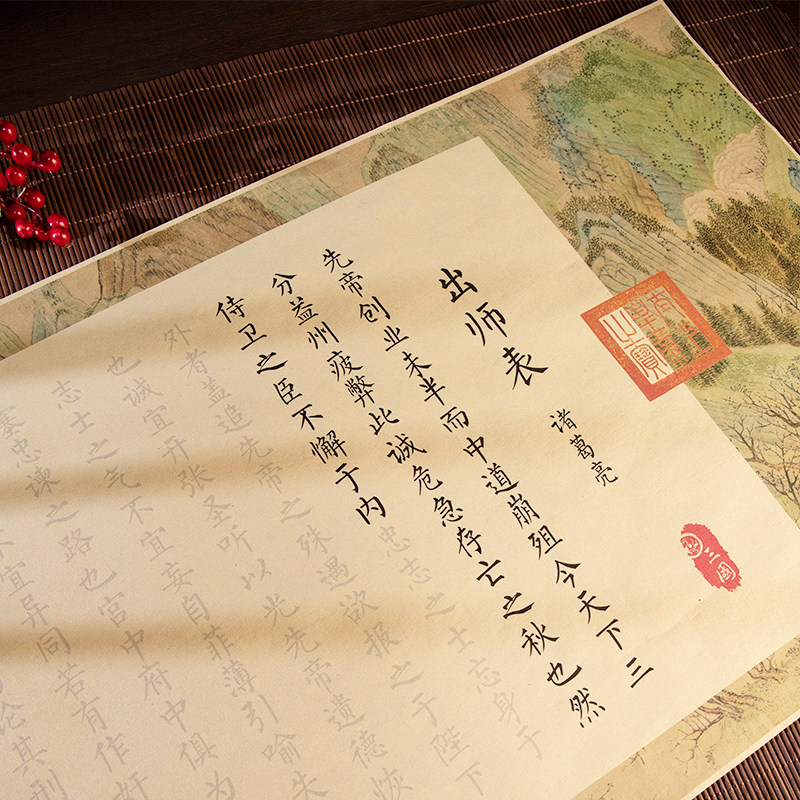 出师表
诸葛亮
先帝创业未半而中道崩殂今天下三
分益州疲弊此诚危急存亡之秋也然
侍卫之臣不懈于内忠志之士忘身于
外者盖追先帝之殊遇欲报之于陛下
也诚宜开张圣听以光先帝遗德恢
志士之气不宜妄自菲薄引喻失
塞忠谏之路也宫中府中俱为
宜异同若有作奸
论其刑
三國